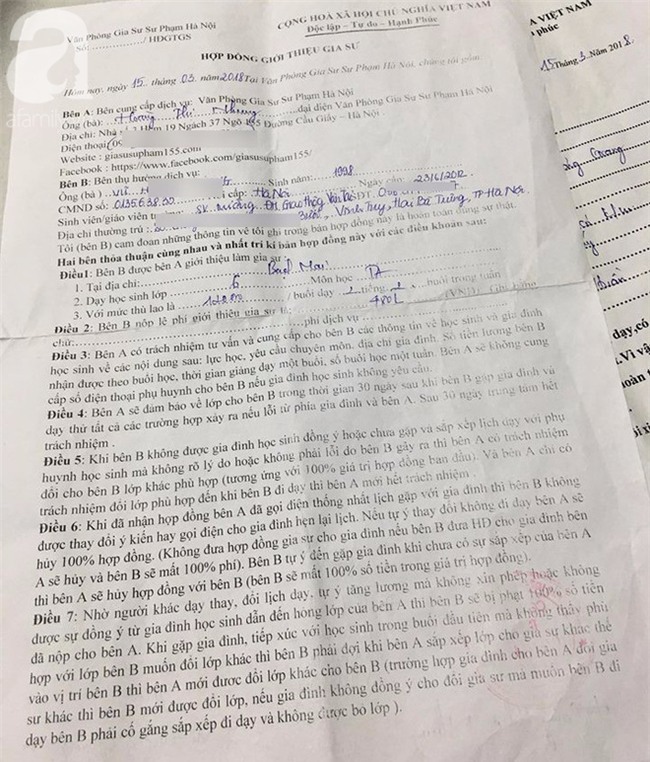 Văn Phòng Gia Sư Sư Phạm Hà Nội
Số:............/ HĐGTGS
CỘNG HOÀ XÃ HỘI CHỦ NGHĨA VIỆT NAM
Độc lập – Tự do – Hạnh Phúc
HỢP ĐỒNG GIỚI THIỆU GIA SƯ
Hôm nay, ngày 15 tháng 03 năm 2018 Tại Văn Phòng Gia Sư Sư Phạm Hà Nội, chúng tôi gồm:
Bên A: Bên cung cấp dịch vụ: Văn Phòng Gia Sư Sư Phạm Hà Nội
Ông (bà): đại diện Văn Phòng Gia Sư Sư Phạm Hà Nội
Địa chỉ: Nhà 19 Ngách 37 Ngõ 165 Đường Cầu Giấy – Hà Nội
Điện thoại
Website : giasusupham155.com
Facebook : https://www.facebook.com/giasusupham155/
Bên B: Bên thụ hưởng dịch vụ:
Ông (bà ) Sinh năm: 1998
CMND số: cấp: Hà Nội Ngày cấp: 23/6/2012
Sinh viên/giáo viên trường: ĐH Giao thông Vận Tải ĐT:
Địa chỉ thường trú : Hai Bà Trưng, TP Hà Nội
Tôi (bên B) cam đoan những thông tin về tôi ghi trong bản hợp đồng này là hoàn toàn đúng sự thật.
Hai bên thỏa thuận cùng nhau và nhất trí kí bản hợp đồng này với các điều khoản sau:
Điều1: Bên B được bên A giới thiệu làm gia sư
1. Tại địa chỉ: Bạch Mai
2. Dạy học sinh lớp 6 Môn học TA
3. Với mức thù lao là buổi dạy 2 tiếng buổi trong tuần
Điều 2: Bên B nộp lệ phí giới thiệu gia sư 480k (VNĐ)
chữ: phí dịch vụ
Điều 3: Bên A có trách nhiệm tư vấn và cung cấp cho bên B các thông tin về học sinh và gia đình
học sinh về các nội dung sau: lực học, yêu cầu chuyên môn, địa chỉ gia đình. Số tiền lương bên B
nhận được theo buổi học, thời gian giảng dạy một buổi, số buổi học một tuần. Bên A sẽ không cung
cấp số điện thoại phụ huynh cho bên B nếu gia đình học sinh không yêu cầu.
Điều 4: Bên A sẽ đảm bảo về lớp cho bên B trong thời gian 30 ngày sau khi bên B gặp gia đình và
dạy thử tất cả các trường hợp xảy ra nếu lỗi từ phía gia đình và bên A. Sau 30 ngày trung tâm hết
trách nhiệm .
Điều 5: Khi bên B không được gia đình học sinh đồng ý hoặc chưa gặp và sắp xếp lịch dạy với phụ
huynh học sinh mà không rõ lý do hoặc không phải lỗi do bên B gây ra thì bên A có trách nhiệm
đổi cho bên B lớp khác phù hợp (tương ứng với 100% giá trị hợp đồng ban đầu). Và bên A chỉ có
trách nhiệm đổi lớp phù hợp đến khi bên B đi dạy thì bên A mới hết trách nhiệm .
Điều 6: Khi đã nhận hợp đồng bên A đã gọi điện thống nhất lịch gặp với gia đình thì bên B không
được thay đổi ý kiến hay gọi điện cho gia đình hẹn lại lịch. Nếu tự ý thay đổi không đi dạy bên A sẽ
hủy 100% hợp đồng. (Không đưa hợp đồng gia sư cho gia đình nếu bên B đưa HĐ cho gia đình bên
A sẽ hủy và bên B sẽ mất 100% phí). Bên B tự ý đến gặp gia đình khi chưa có sự sắp xếp của bên A
thì bên A sẽ hủy hợp đồng với bên B (bên B sẽ mất 100% số tiền trong giá trị hợp đồng).
Điều 7: Nhờ người khác dạy thay, đổi lịch dạy, tự ý tăng lương mà không xin phép hoặc không
được sự đồng ý từ gia đình học sinh dẫn đến hỏng lớp của bên A thì bên B sẽ bị phạt 100% số tiền
đã nộp cho bên A. Khi gặp gia đình, tiếp xúc với học sinh trong buổi đầu tiên mà không thấy phù
hợp với lớp bên B muốn đổi lớp khác thì bên B phải đợi khi bên A sắp xếp lớp cho gia sư khác thế
vào vị trí bên B thì bên A mới được đổi lớp khác cho bên B (trường hợp gia đình cho bên A đổi gia
sư khác thì bên B mới được đổi lớp, nếu gia đình không đồng ý cho đổi gia sư mà muốn bên B đi
dạy bên B phải cố gắng sắp xếp đi dạy và không được bỏ lớp ).
A VIỆT NAM
phúc
15 Tháng 3 Năm 2018
dạy,có
.Vì vậ